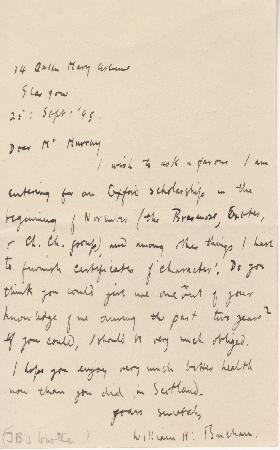 34 Queen Mary Avenue
Glasgow
25: Sept: '98.
Dear Mr Murray
I wish to ask a favour. I am
entering for an Oxford scholarship in the
beginning of November (the Brasenose, Exeter,
or Ch. Ch. group) and among other things I have
to furnish certificates of 'character'. Do you
think you could give me one out of your
knowledge of me during the past two years?
If you could, I should be very much obliged.
I hope you enjoy very much better health
now than you did in Scotland.
yours sincerely
William H. Buchan.
(JB's brother)